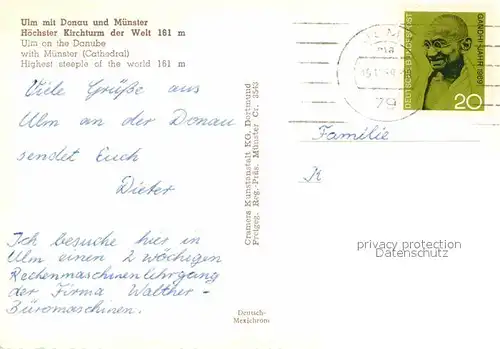 Ulm mit Donau und Münster
Höchster Kirchturm der Welt 161 m
Ulm on the Danube
with Münster (Cathedral)
Highest steeple of the world 161 m
Viele Grüße aus
Ulm an der Donau
sendet Euch
Dieter
Ich besuche hier in
Ulm einen 2 wöchigen
Rechenmaschinenlehrgang
der Firma Walther-
Büromaschinen.
Cramers Kunstanstalt KG. Dortmund
Freigeg. Reg.-Präs. Münster Cr. 3543
Deutsch-
Mexichrom
79
DEUTSCHE BUNDESPOST
GANDHI-JAHR 1969
20
Familie
K
privacy protection
Datenschutz